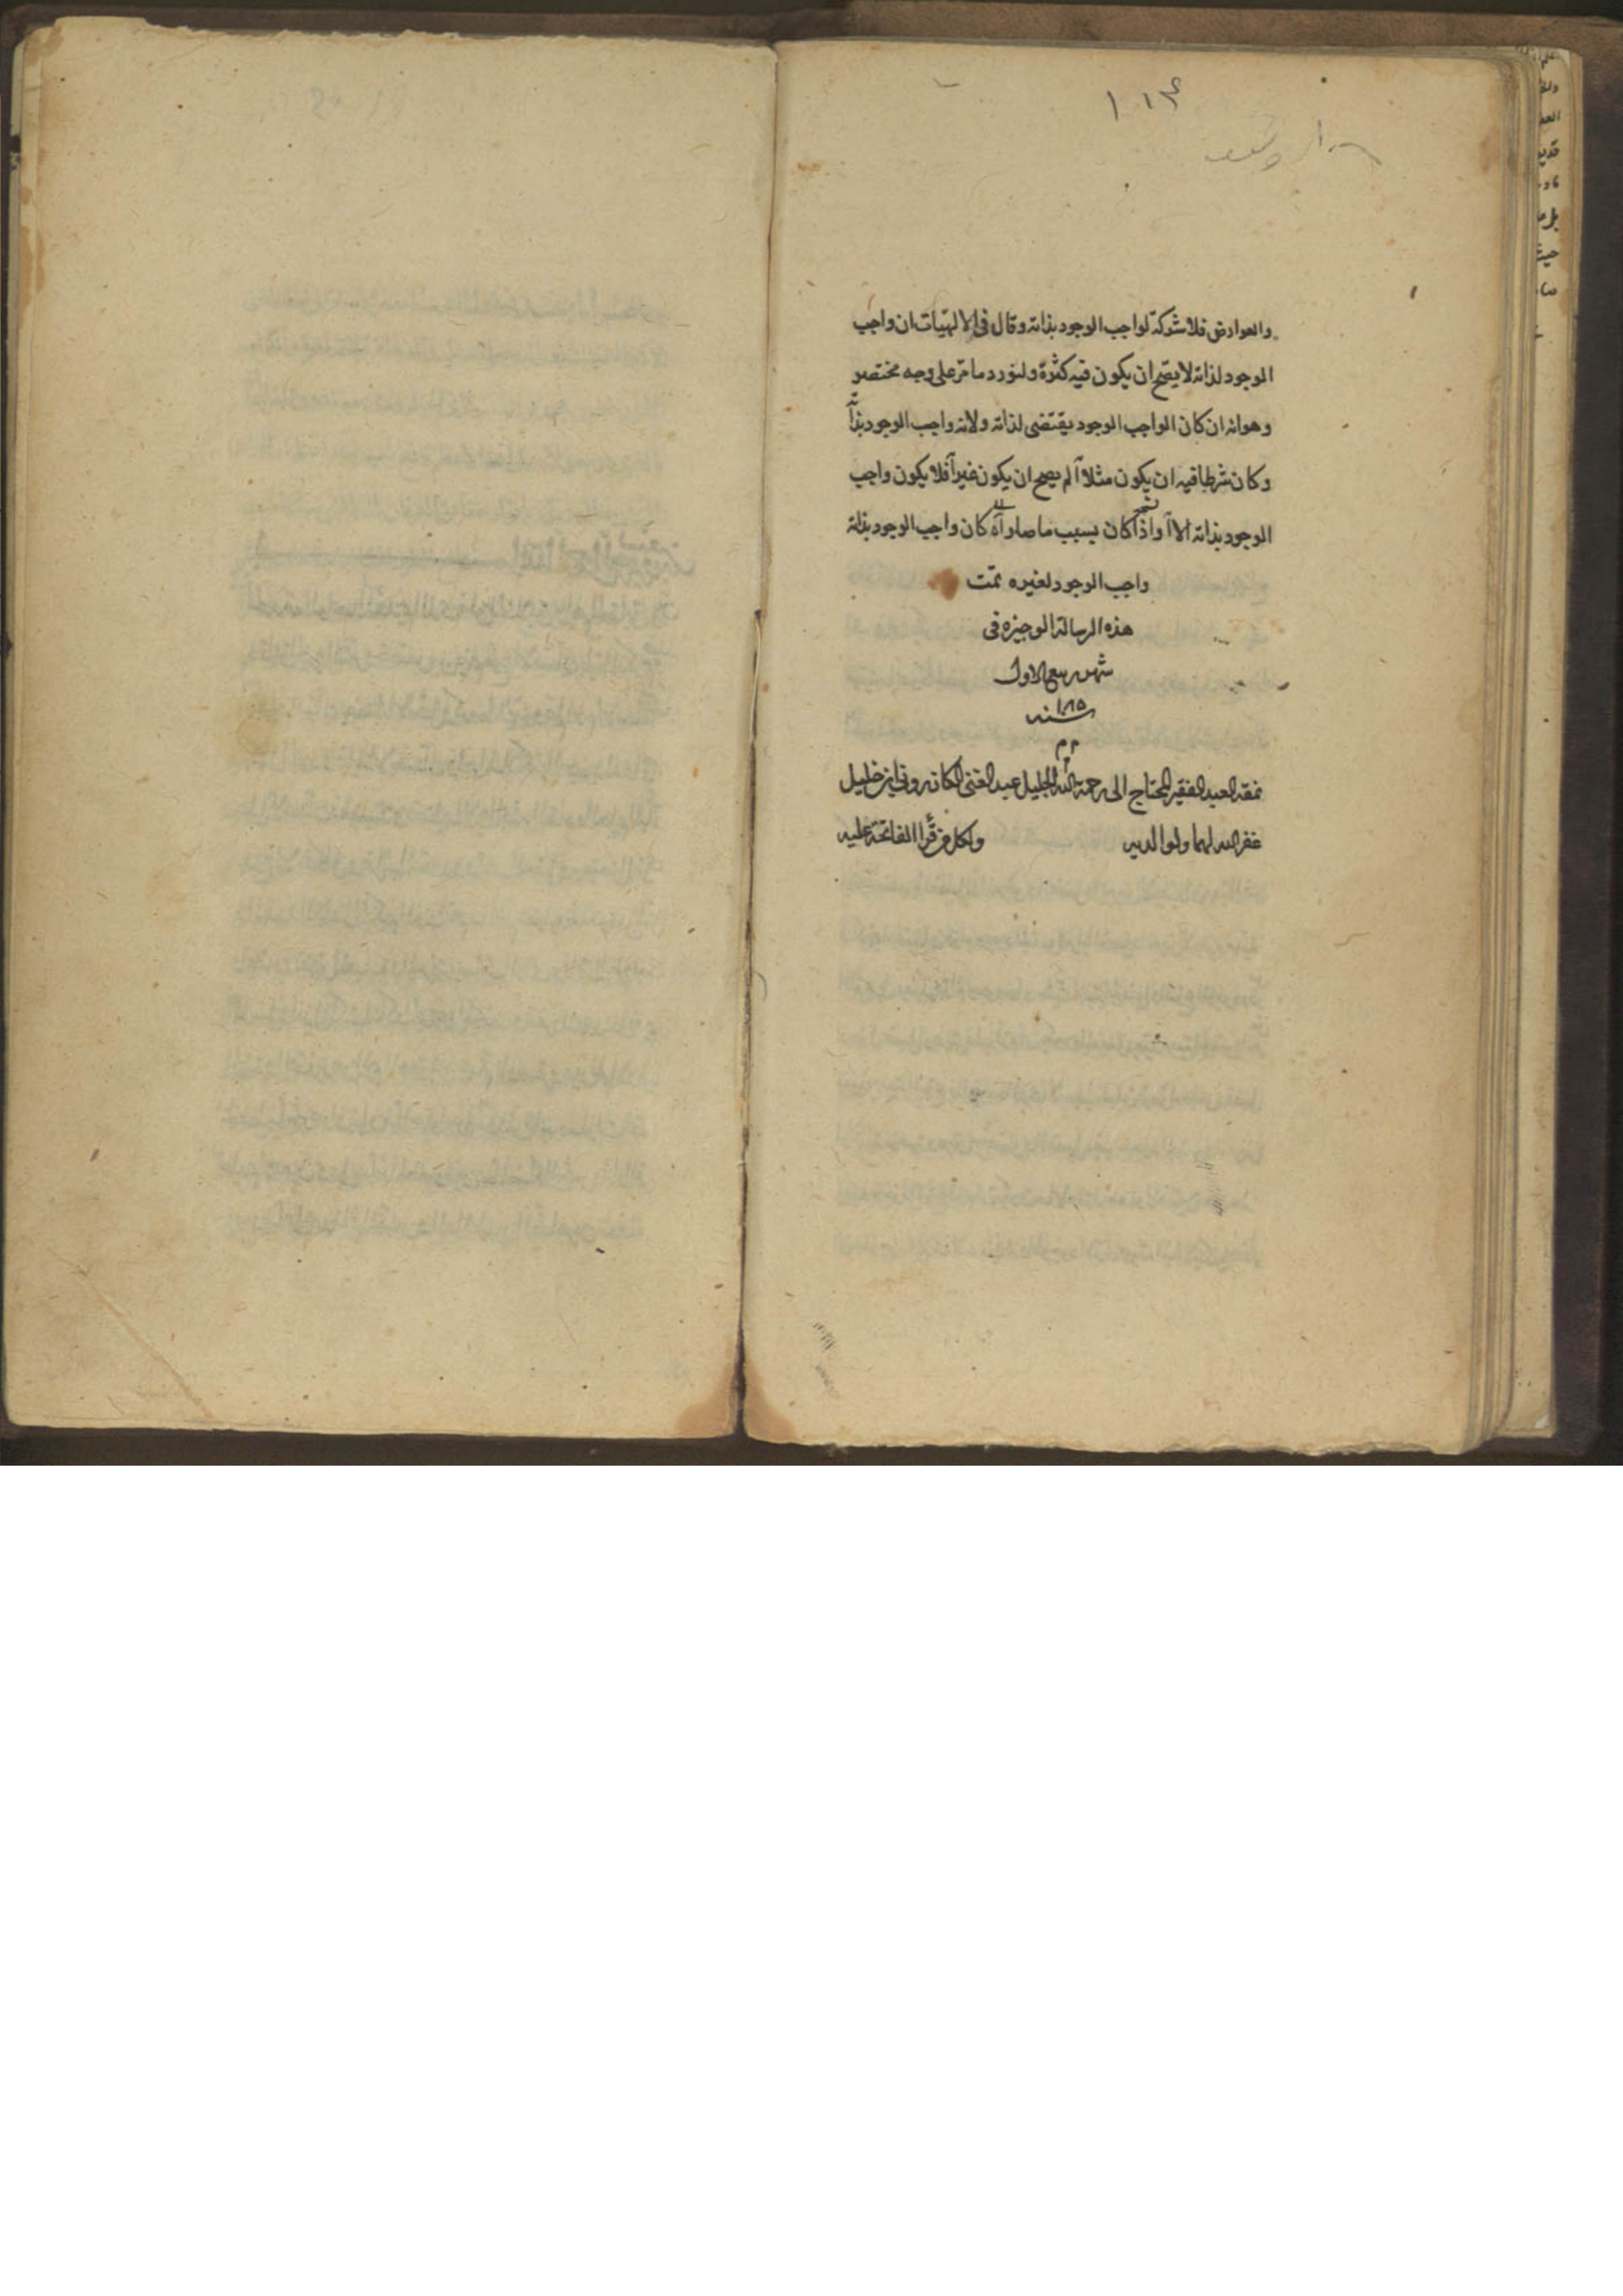 والعوارض فلا شركة لواجب الوجود بذاته وقال فى الالهيّات ان واجب
الوجود لذاته لا يصّح ان يكون فيه كثرة ولنورد ما مّر على وجه مختصر
وهو انه ان كان الواجب الوجود يقتضى لذاته ولانه واجب الوجود بذاته
وكان شرطا فيه ان يكون مثلا آ لم يصح ان يكون غير آ فلا يكون واجب
الوجود بذاته الا آ واذا كان بسبب ما صار آ كان واجب الوجود بذاته
واجب الوجود لغيره تمّت
هذه الرسالة الوجيزه فى
شهر ربيع الاول
سنه ١٠٨٥
نمقه العبد الفقير المحتاج الى رحمة الله الجليل عبد الغنى الكازرونى ابن خليل
غفر الله لهما ولوالديه ولكل من قرأ الفاتحة عليه